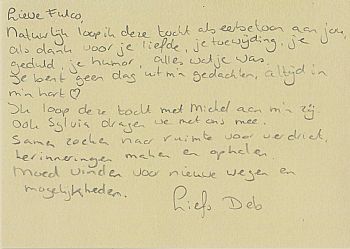 Lieve Fulco,
Natuurlijk loop ik deze tocht als eerbetoon aan jou,
als dank voor je liefde, je toewijding, je
geduld, je humor, alles wat je was.
Je bent geen dag uit m'n gedachten, altijd in
m'n hart ♡
Ik loop deze tocht met Michel aan m'n zij
Ook Sylvia dragen we met ons mee.
Samen zoeken naar ruimte voor verdriet,
herinneringen maken en ophalen.
Moed vinden voor nieuwe wegen en
mogelijkheden.
Liefs Deb